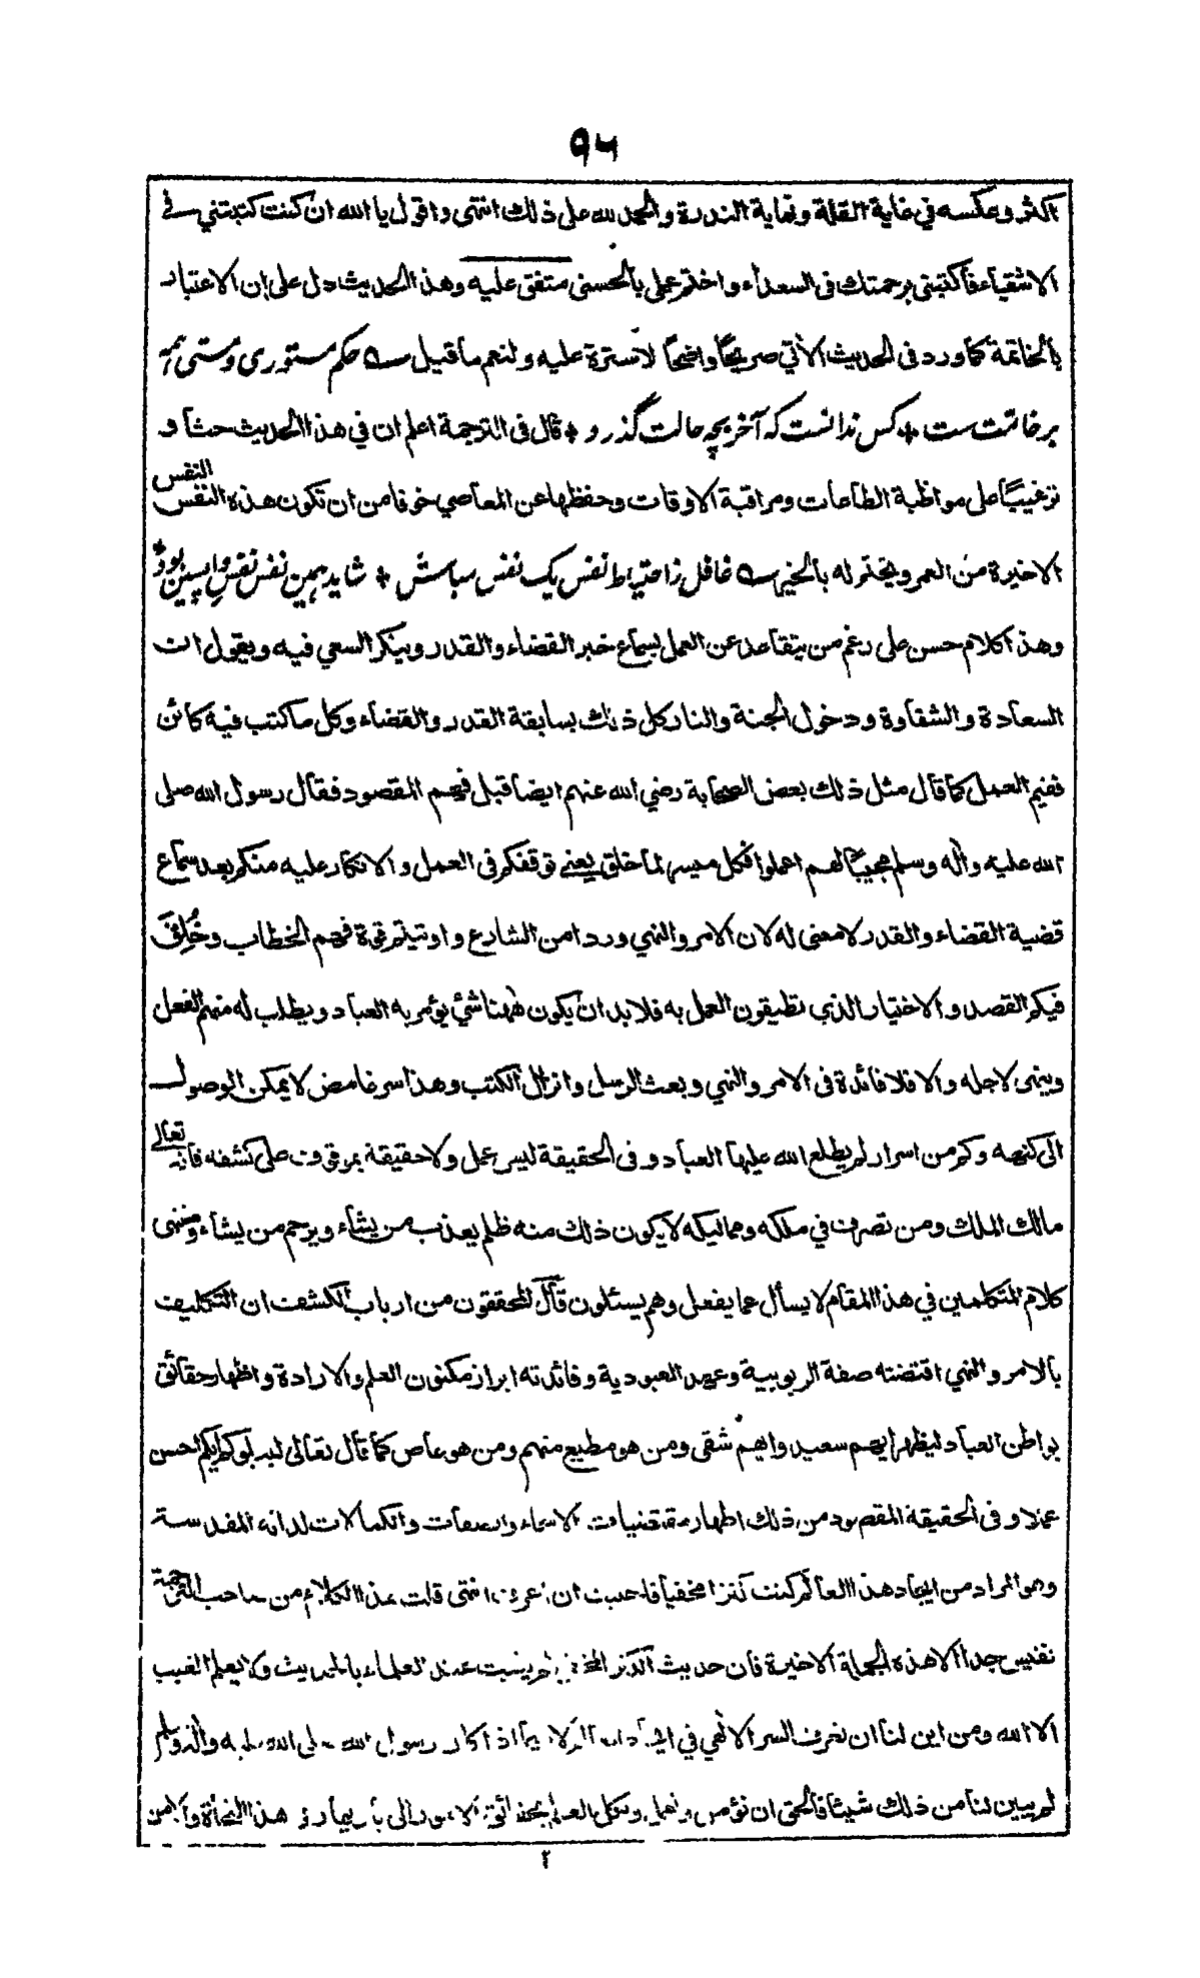 ٩٥
اكثر وعكسه في غاية القلة ونهاية الندرة والحمد لله على ذلك انتهى واقول يا الله ان كنت كتبتني في
الاشقياء فاكتبني برحمتك فى السعداء واختم عملي بالحسنى متفق عليه وهذا الحديث دل على ان الاعتبار
بالخاتمة كما ورد فى الحديث الأتي صريحًا واضحًا لا سترة عليه ولنعم ما قيل ؎ حكم مستورى ومستى همه
بر خاتمت ست * كس ندانست كه آخر بچه حالت گذرد * قال فى الترجمة اعلم ان في هذا الحديث حثا و
ترغيبًا على مواظبة الطاعات ومراقبة الاوقات وحفظها عن المعاصي خوفا من ان تكون هذه النفس النفس
الاخيرة من العمر ويختم له بالخير ؎ غافل ز احتياط نفس يک نفس مباش * شايد همين نفس نفسِ واپسين بود *
وهذا كلام حسن على رغم من يتقاعد عن العمل بسماع خبر القضاء والقدر وينكر السعي فيه ويقول ان
السعادة والشقاوة ودخول الجنة والنار كل ذلك بسابقة القدر والقضاء وكل ما كتب فيه كائن
ففيم العمل كما قال مثل ذلك بعض الصحابة رضي الله عنهم ايضا قبل فهم المقصود فقال رسول الله صلى
الله عليه وآله وسلم مجيبًا لهم اعملوا فكل ميسر لما خلق يعنى توقفكم فى العمل والانكار عليه منكم بعد سماع
قضية القضاء والقدر لا معنى له لان الامر والنهي وردا من الشارع واوتيتم قوة فهم الخطاب وخُلِقَ
فيكم القصد والاختيار الذي تطيقون العمل به فلا بد ان يكون ههنا شئي يؤمر به العباد ويطلب له منهم الفعل
وينهى لاجله والا فلا فائدة فى الامر والنهي وبعث الرسل وانزال الكتب وهذا سر غامض لا يمكن الوصول
الى كنهه وكم من اسرار لم يطلع الله عليها العباد و فى الحقيقة ليس عمل ولا حقيقة بموقوف على كشفه فانه تعالى
مالك الملك ومن تصرف في ملكه ومماليكه لا يكون ذلك منه ظلم يعذب من يشاء ويرحم من يشاء ومنتهى
كلام المتكلمين في هذا المقام لا يسأل عما يفعل وهم يسئلون قال المحققون من ارباب الكشف ان التكليف
بالامر والنهي اقتضته صفة الربوبية وعهد العبودية وفائدته ابراز مكنون العلم والارادة واظهار حقائق
بواطن العباد ليظهر ايهم سعيد وايهم شقى ومن هو مطيع منهم ومن هو عاص كما قال تعالى ليبلوكم ايكم احسن
عملا و فى الحقيقة المقصود من ذلك اظهار مقتضيات الاسماء والصفات والكمالات لذاته المقدسة
وهو المراد من ايجاد هذا العالم كنت كنزا مخفيا فاحببت ان اعرف انتهى قلت هذا الكلام من صاحب الترجمة
نفيس جدا الا هذه الجملة الاخيرة فان حديث الكنز المخفي لم يثبت عند العلماء بالحديث ولا يعلم الغيب
الا الله ومن اين لنا ان نعرف السر الالهي في اذ كان رسول الله صلى الله عليه واله وسلم
لم يبين لنا من ذلك شيئا فالحق ان نؤمن ونعمل ونكل العلم بحقائق الامور الى باريها هذا
٢